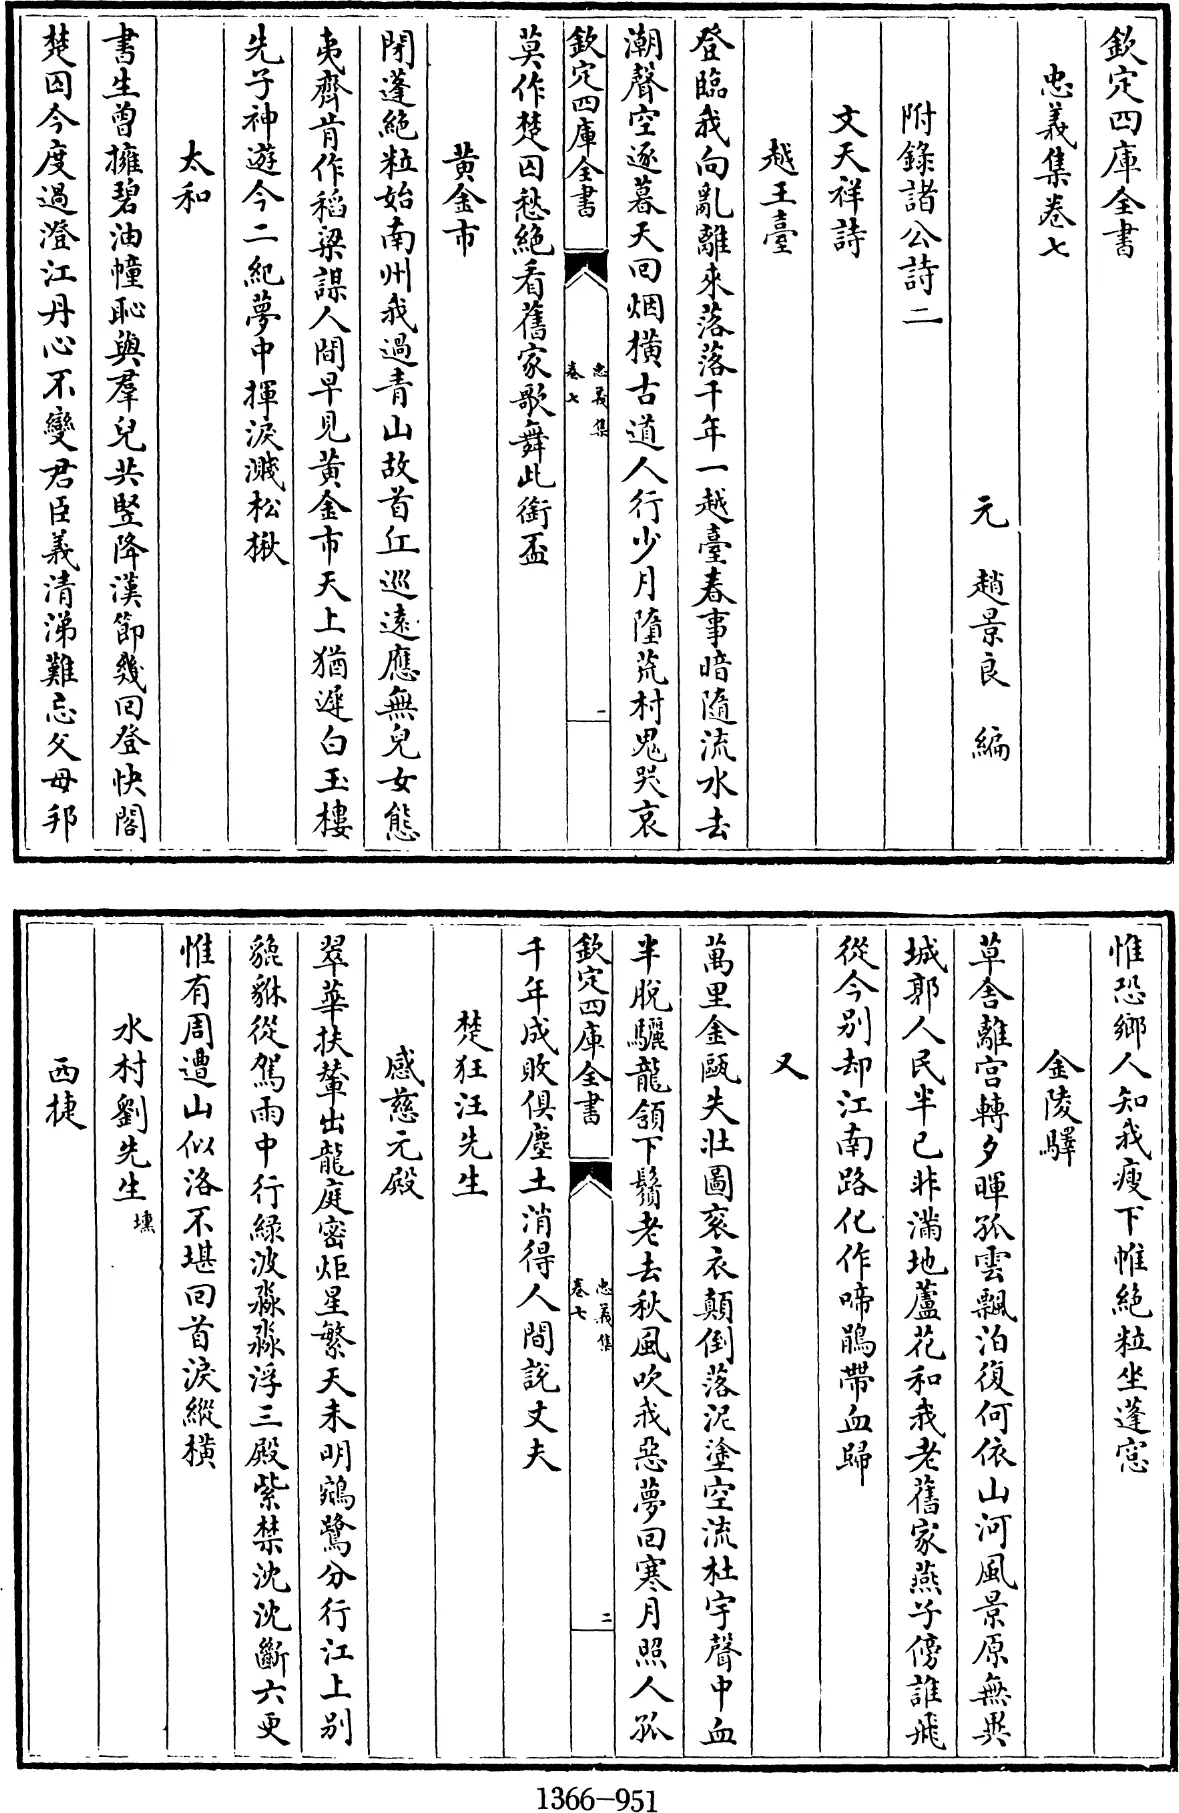 欽定四庫全書
忠義集卷七
元　趙景良　編
附錄諸公詩二
文天祥詩
越王臺
登臨我向亂離來落落千年一越臺春事暗隨流水去
潮聲空逐暮天回烟橫古道人行少月墮荒村鬼哭哀
欽定四庫全書
忠義集
卷七
一
莫作楚囚愁絶看舊家歌舞此銜盃
黃金市
閉蓬絶粒始南州我過青山故首丘巡遠應無兒女態
夷齊肯作稻粱謀人間早見黃金市天上猶遲白玉樓
先子神遊今二紀夢中揮淚濺松楸
太和
書生曾擁碧油幢恥與羣兒共豎降漢節幾回登快閣
楚囚今度過澄江丹心不變君臣義清涕難忘父母邦
惟恐鄉人知我瘦下帷絶粒坐蓬窓
金陵驛
草舍離宫轉夕暉孤雲飄泊復何依山河風景原無異
城郭人民半已非滿地蘆花和我老舊家燕子傍誰飛
從今别却江南路化作啼鵑帶血歸
又
萬里金甌失壯圖衮衣顛倒落泥塗空流杜宇聲中血
半脫驪龍頷下鬚老去秋風吹我惡夢回寒月照人孤
欽定四庫全書
忠義集
卷七
二
千年成敗俱塵土消得人間説丈夫
楚狂汪先生
感慈元殿
翠華扶輦出龍庭密炬星繁天未明鵷鷺分行江上别
貔貅從駕雨中行緑波淼淼浮三殿紫禁沈沈斷六更
惟有周遭山似洛不堪回首淚縱橫
水村劉先生壎
西捷
1366-951